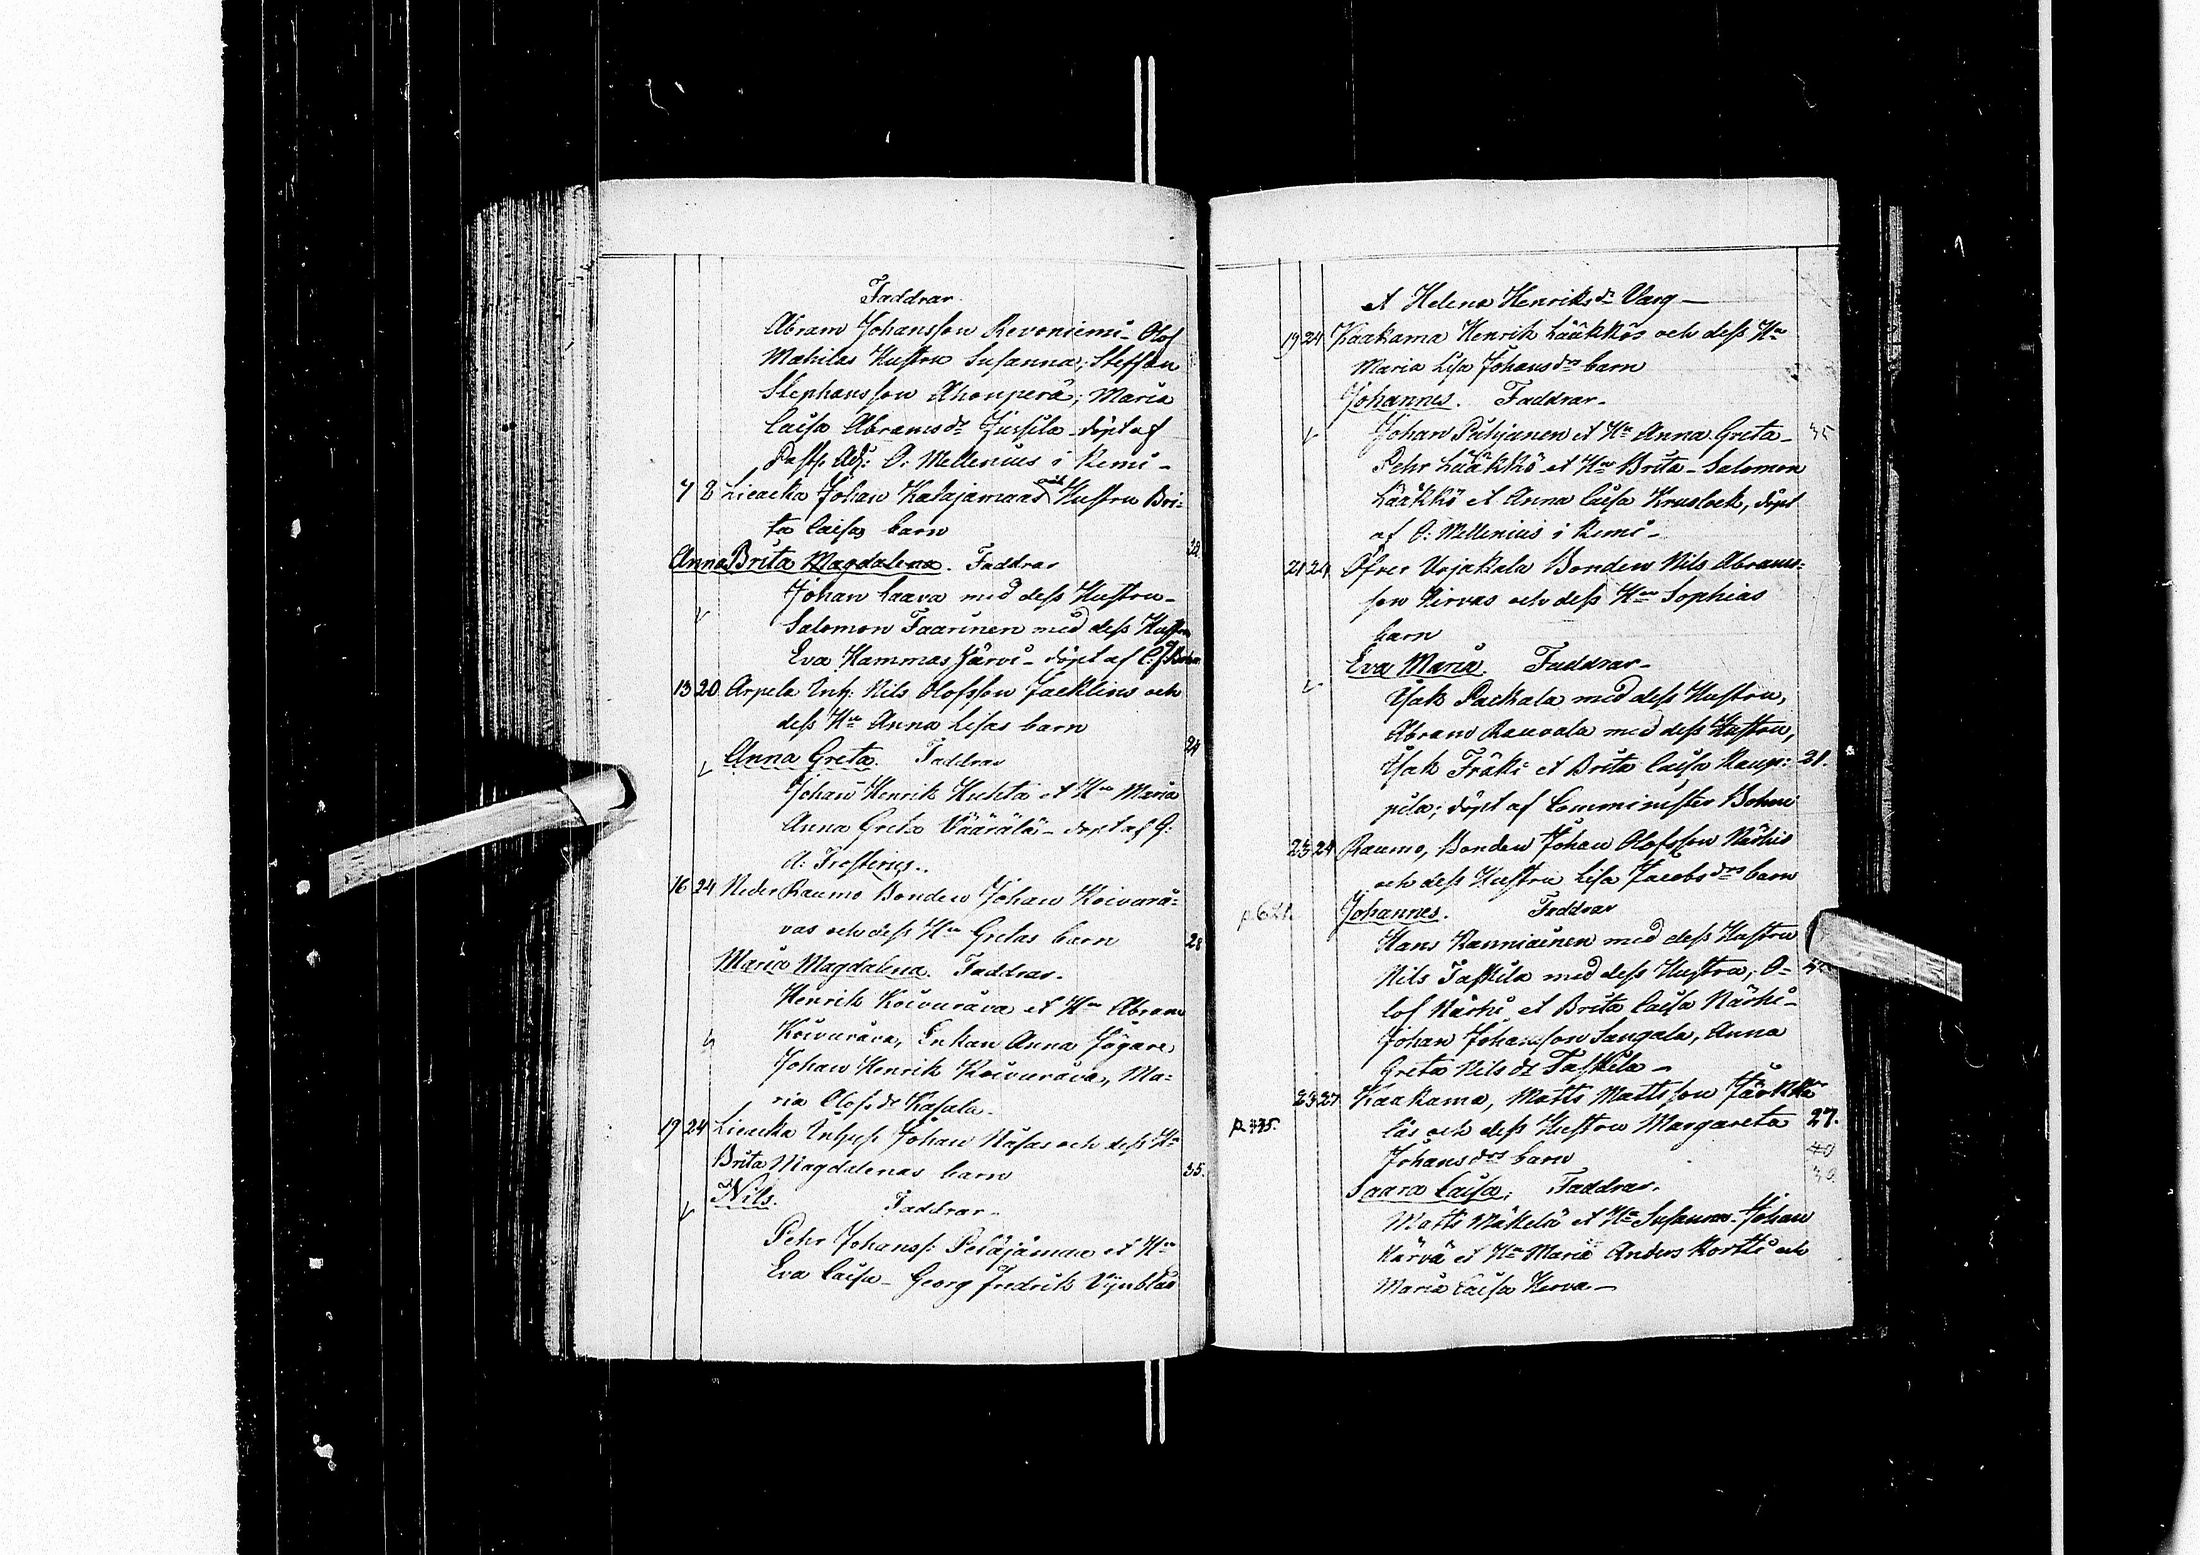 Faddrar.
Abram Johansson Revoniemi - Olof
Makilas Hustru Susanna; Steffan
Stephansson Ahonperä; Maria
Caisa Abramsdr Jussila - döpt af
Past: Adj: O: Mellenius i Kemi -
7 8 Lieacka Johan Katajamaas och Hustru Bri-
ta Caisas barn
28
Anna Brita Magdalena. Faddrar
Johan Laava med dess Hustru -
Salomon Taarinen med dess Hustru
Eva Hammasjärvi - döpt af C. J.
13 20 Arpela Inh: Nils Olofsson Jacklins och
dess Hu Anna Lisas barn
24
Anna Greta. Faddrar
Johan Henrik Huhta et Hu Maria
Anna Greta Väärälä - döpt af G:
A: Frosterus.
16 24 Neder Raumo Bonden Johan Koivurå-
vas och dess Hu Gretas barn
28
Maria Magdalena. Faddrar.
Henrik Koivuråva et Hu Abram
Koivuråva, Enkan Anna Jägare,
Johan Henrik Koivuråva, Ma-
ria Olofsdr Kasala.
19 24 Lieacka Inhys: Johan Näsas och dess Hu
Brita Magdalenas barn
35.
Nils.
Faddrar -
Pehr Johanss: Petäjämaa et Hu
Eva Caisa - Georg Fredrik
et Helena Henriksdr Varg -
19 24 Kaakama Henrik Lääkkös och dess Hu
Maria Lisa Johansdrs barn
Johannes. Faddrar -
Johan Puhjanen et Hu Anna Greta -
35
Pehr Lääkkö et Hu Brita - Salomon
Lääkkö et Anna Caisa Kruslock, döpt
af O: Mellenius i Kemi -
21 24 Öfver Vojakala Bonden Nils Abrams-
son Hirvas och dess Hu Sophias
barn
Eva Maria. Faddrar -
Isak Packala med dess Hustru,
Abram Rauvala med dess Hustru,
Isak Träki et Brita Caisa Kaup-
21.
pila; döpt af Comminister Bohm
23 24 Raumo, Bonden Johan Olofsson Närhis
och dess Hustru Lisa Jacobsdrs barn
p. 621.
Johannes. Faddrar
Hans Kanniainen med dess Hustru
Nils Taskila med dess Hustru, O-
lof Närhi et Brita Caisa Närhi -
Johan Johansson Sangala, Anna
Greta Nilsdr Taskila -
23 27 Kaakama, Matts Mattsson Järkkä-
p. 335.
läs och dess Hustru Margareta
27.
Johansdrs barn
40
30
Saara Caisa; Faddrar.
Matts Mäkelä et Hu Susanna - Johan
Kärvä et Hu Maria Anders Kortti och
Maria Caisa Kerva -